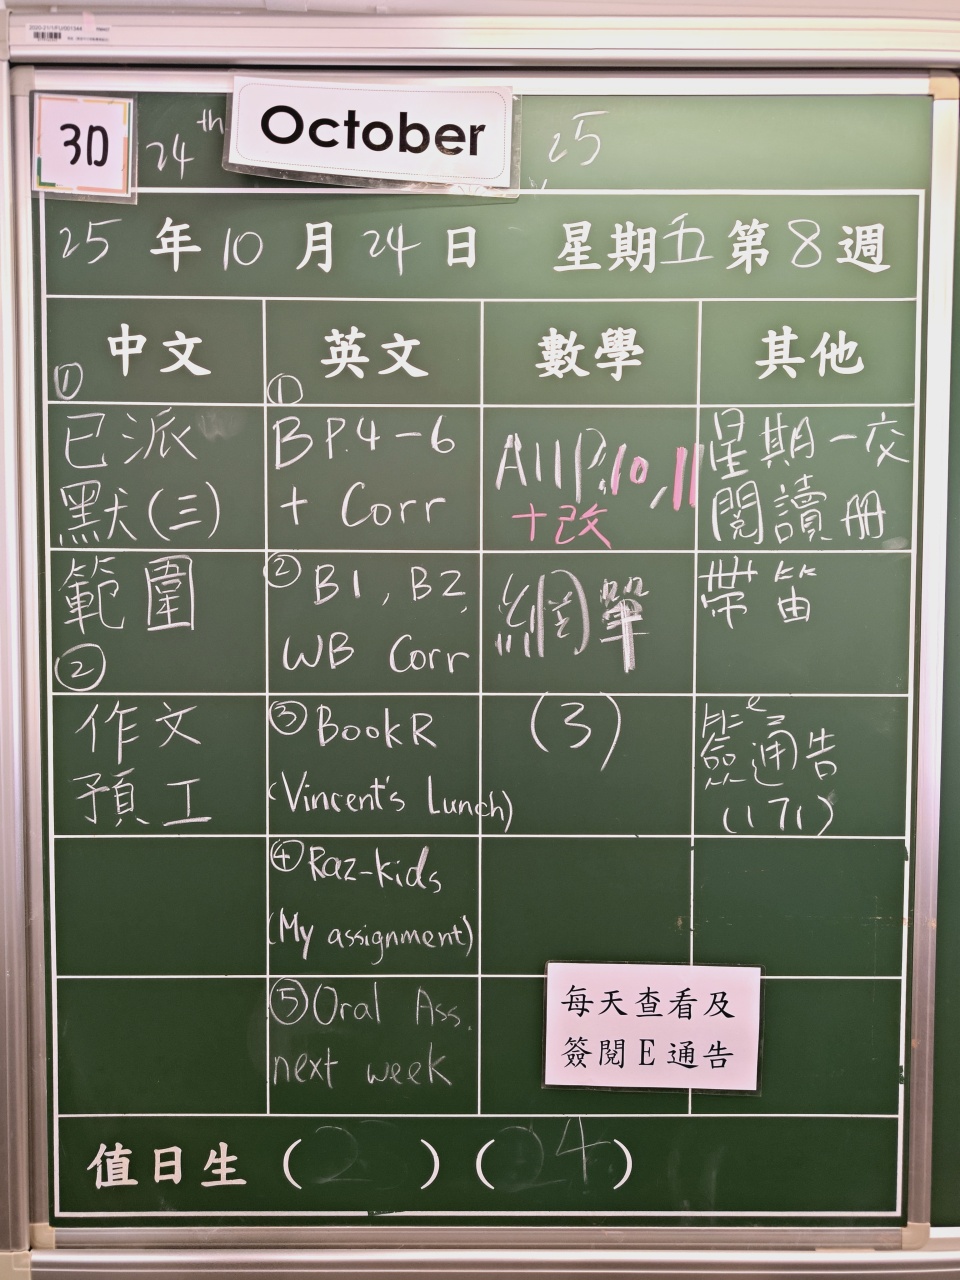 3D 24th October 25
25 年 10 月 24 日 星期五 第 8 週
中文 英文 數學 其他
①
已派
默(三)
範圍
②
作文
預工
①
B P.4-6
+ Corr
② B1, B2,
WB Corr
③ BookR
(Vincent's Lunch)
④ Raz-kids
(My assignment)
⑤ Oral Ass.
next week
A11 P.10,11
+改
網單
(3)
星期一交
閱讀冊
帶笛
簽e通告
(171)
每天查看及
簽閱E通告
值日生 (2) (24)